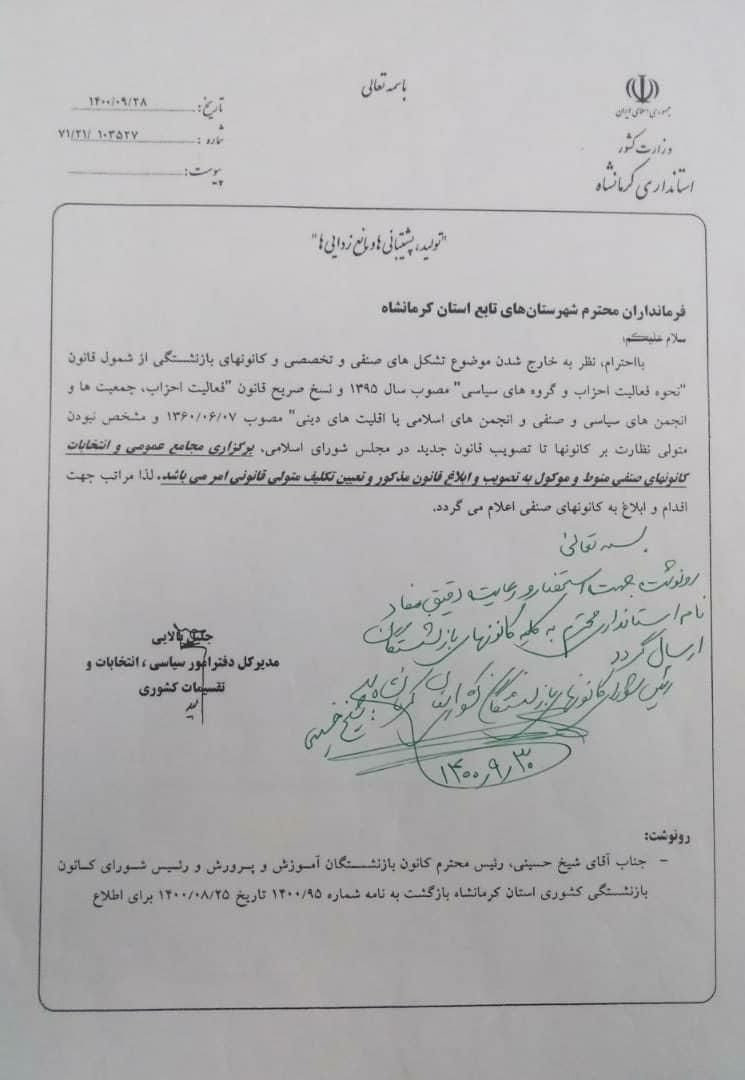 باسمه تعالی
جمهوری اسلامی ایران
وزارت کشور
استانداری کرمانشاه
تاریخ: ۱۴۰۰/۰۹/۲۸
شماره : ۷۱/۲۱/ ۱۰۳۵۲۷
پیوست:
"تولید، پشتیبانی ها و مانع زدایی ها"
فرمانداران محترم شهرستان‌های تابع استان کرمانشاه
سلام علیکم؛
بااحترام، نظر به خارج شدن موضوع تشکل های صنفی و تخصصی و کانونهای بازنشستگی از شمول قانون
"نحوه فعالیت احزاب و گروه های سیاسی" مصوب سال ۱۳۹۵ و نسخ صریح قانون "فعالیت احزاب، جمعیت ها و
انجمن های سیاسی و صنفی و انجمن های اسلامی یا اقلیت های دینی" مصوب ۱۳۶۰/۰۶/۰۷ و مشخص نبودن
متولی نظارت بر کانونها تا تصویب قانون جدید در مجلس شورای اسلامی، برگزاری مجامع عمومی و انتخابات
کانونهای صنفی منوط و موکول به تصویب و ابلاغ قانون مذکور و تعیین تکلیف متولی قانونی امر می باشد. لذا مراتب جهت
اقدام و ابلاغ به کانونهای صنفی اعلام می گردد.
بسمه تعالی
رونوشت جهت استحضار و رعایت دقیق مفاد
نامه استانداری محترم به کلیه کانونهای بازنشستگان
ارسال گردد
رئیس شورای کانونهای بازنشستگان کشوری استان کرمانشاه
شیخ حسینی
۱۴۰۰/۹/۳۰
جلیل بالایی
مدیرکل دفتر امور سیاسی ، انتخابات و
تقسیمات کشوری
رونوشت:
- جناب آقای شیخ حسینی، رئیس محترم کانون بازنشستگان آموزش و پرورش و رئیس شورای کانون
بازنشستگی کشوری استان کرمانشاه بازگشت به نامه شماره ۱۴۰۰/۹۵ تاریخ ۱۴۰۰/۰۸/۲۵ برای اطلاع